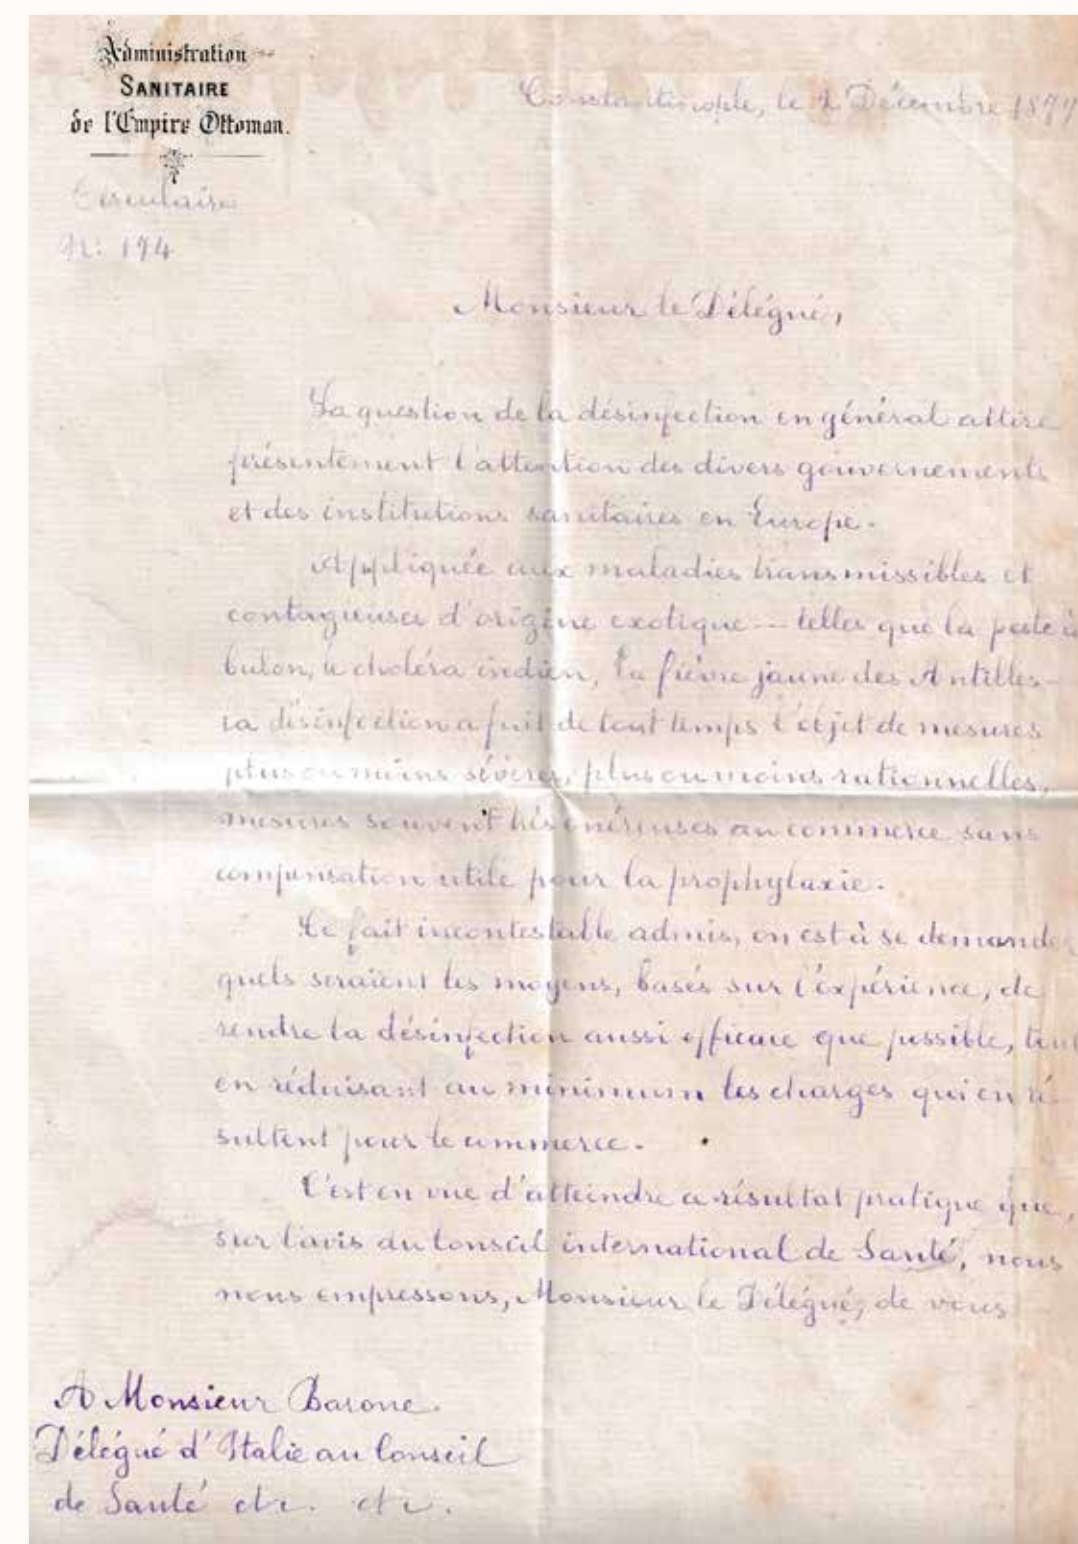 Administration
SANITAIRE
de l'Empire Ottoman.
Constantinople, le Décembre 187
Circulaire
N: 174
Monsieur le Délégué,
La question de la désinfection en général attire
présentement l'attention des divers gouvernements
et des institutions sanitaires en Europe.
Appliquée aux maladies transmissibles et
contagieuses d'origine exotique — telles que la peste à
bubon, le choléra indien, la fièvre jaune des Antilles —
la désinfection a fait de tout temps l'objet de mesures
plus ou moins sévères, plus ou moins rationnelles,
mesures souvent très onéreuses au commerce sans
compensation utile pour la prophylaxie.
Ce fait incontestable admis, on est à se demander
quels seraient les moyens, basés sur l'expérience, de
rendre la désinfection aussi efficace que possible, tout
en réduisant au minimum les charges qui en ré-
sultent pour le commerce.
C'est en vue d'atteindre ce résultat pratique que,
sur l'avis du Conseil international de Santé, nous
nous empressons, Monsieur le Délégué, de vous
A Monsieur Barone.
Délégué d'Italie au Conseil
de Santé etc. etc.